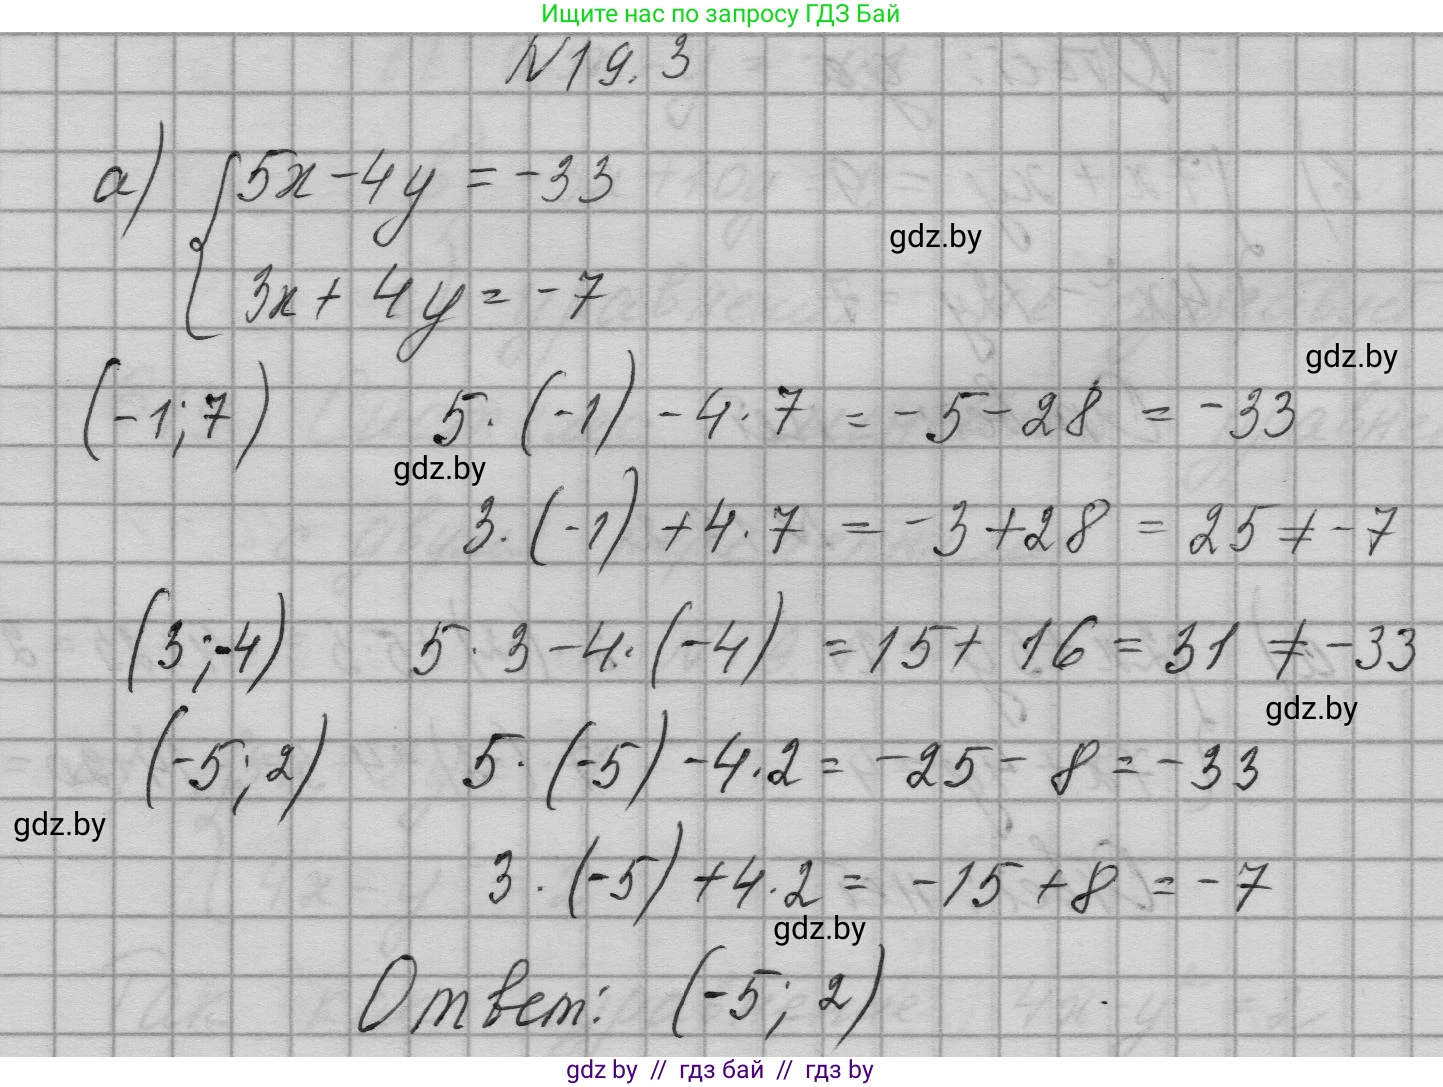 Ищите нас по запросу ГДЗ Бай
N19.3
а) { 5x-4y = -33
gdz.by
3x+4y = -7
gdz.by
(-1; 7) 5·(-1) - 4·7 = -5-28 = -33
gdz.by
3·(-1) + 4·7 = -3+28 = 25 ≠ -7
(3; -4) 5·3-4·(-4) = 15+16 = 31 ≠ -33
gdz.by
(-5; 2) 5·(-5) - 4·2 = -25-8 = -33
gdz.by
3·(-5) + 4·2 = -15+8 = -7
gdz.by
Ответ: (-5; 2)
gdz by // гдз бай // гдз by